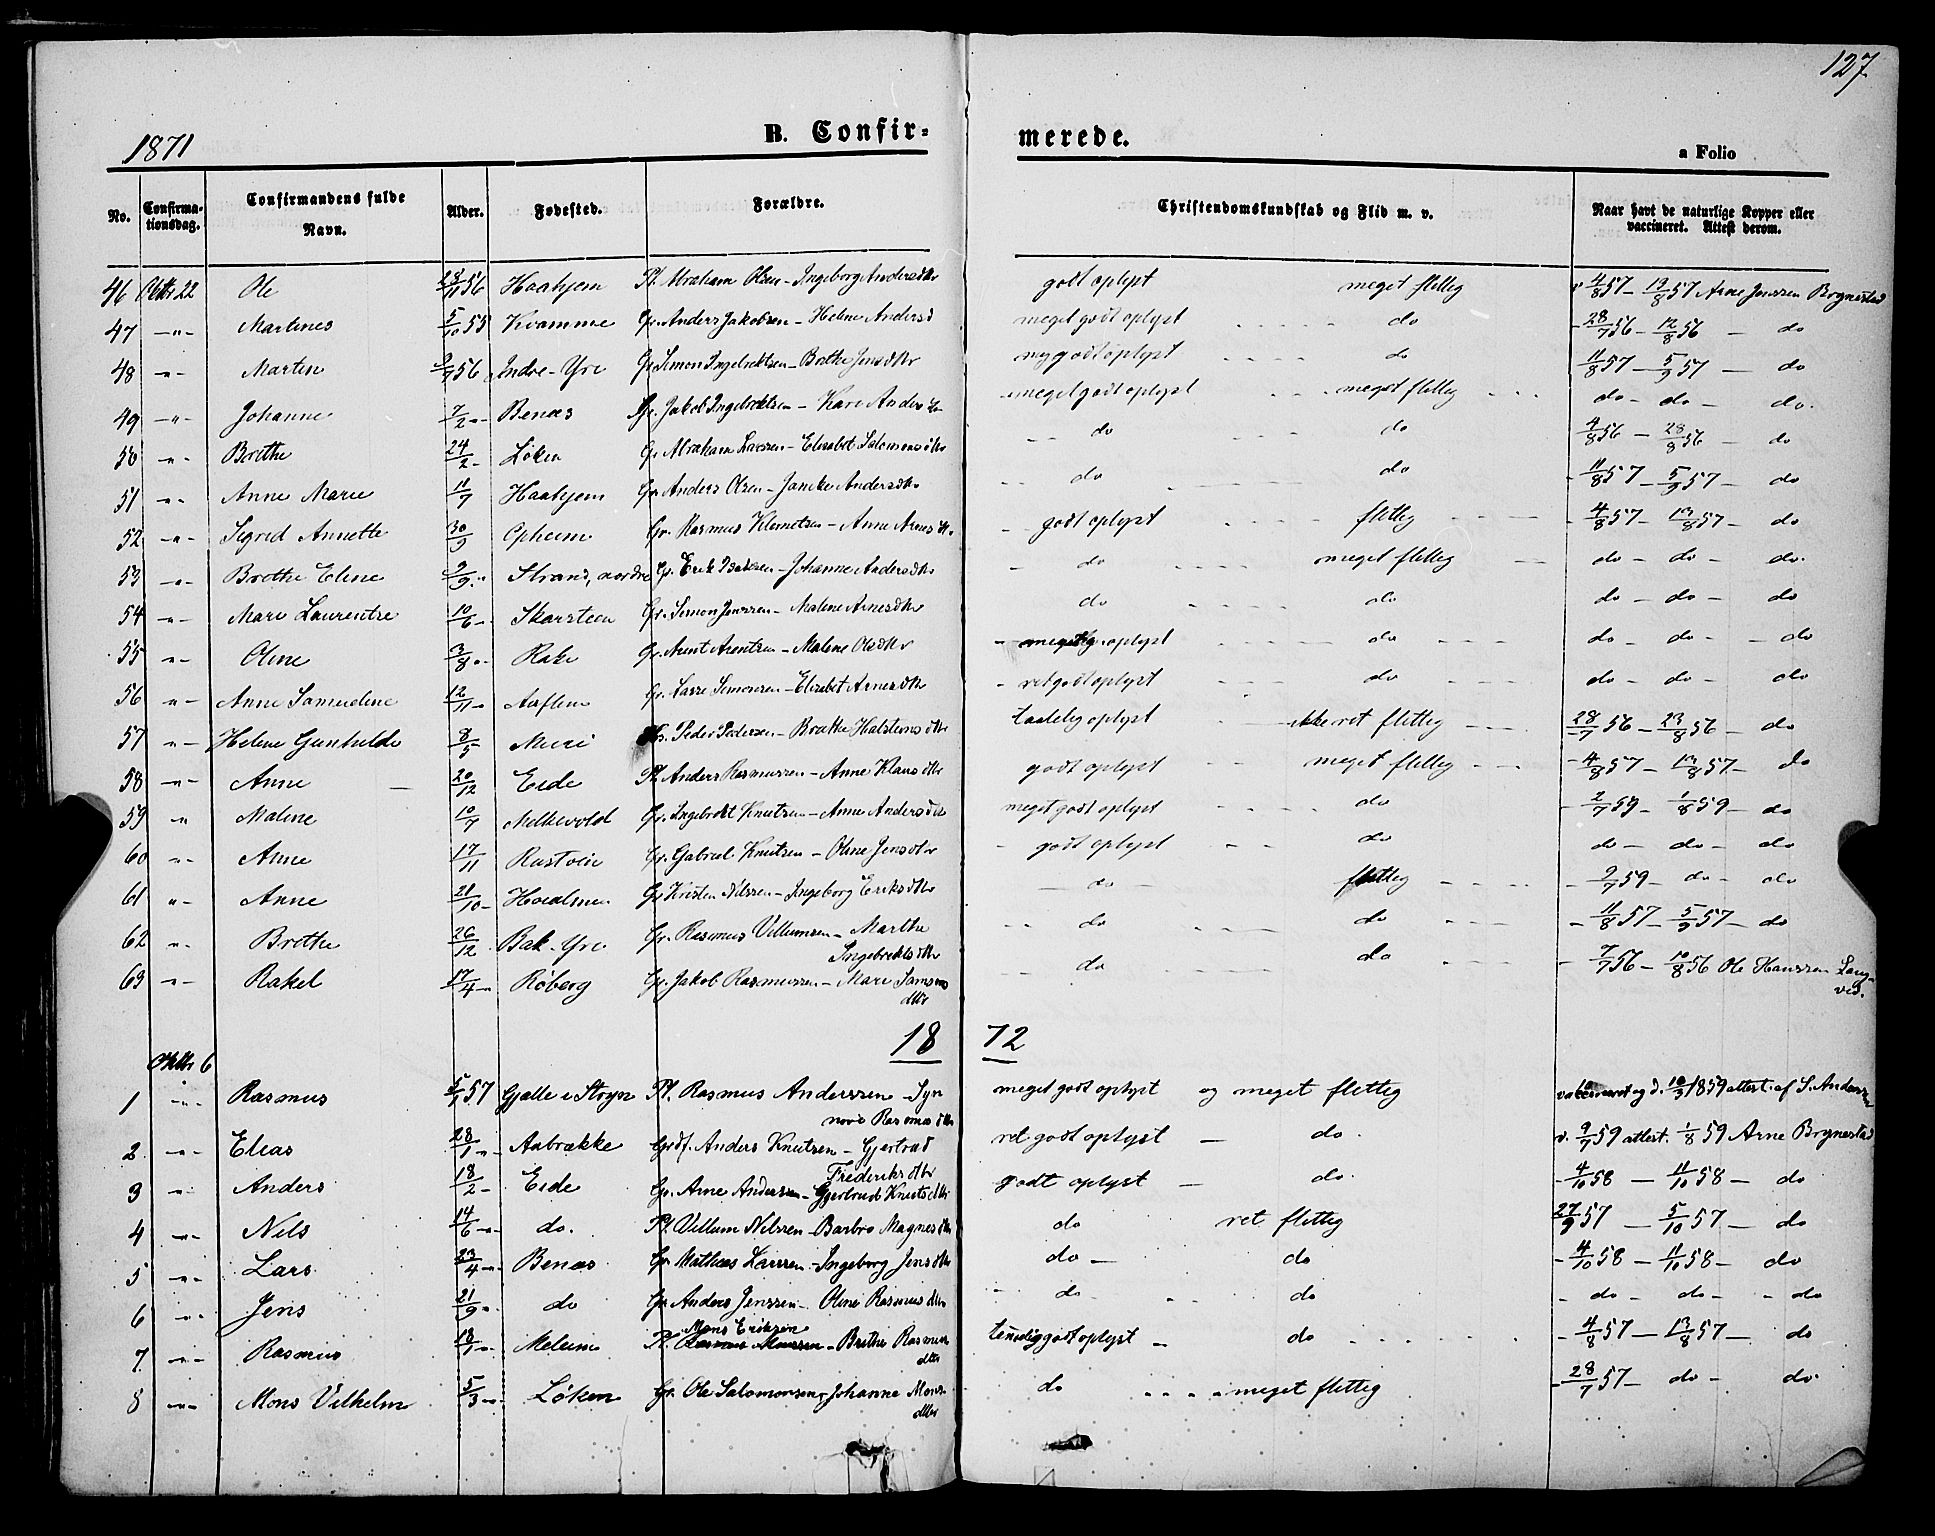 127
1871
B. Confirmerede.
a Folio
No. Confirmationsdag. Confirmandens fulde Navn. Alder. Fødested. Forældre. Christendomskundskab og Flid m. v. Naar havt de naturlige Kopper eller vaccineret. Attest derom.
46 Oktbr 22 Ole 28/11 56 Haahjem Pl. Abraham Olsen - Ingeborg Andersdtr godt oplyst meget flittig " 4/8 57 - 19/8 57 Arne Jonssen Brynestad
47 -"- Martines 5/10 55 Kvamme Gr. Anders Jakobsen - Helene Andersd meget godt oplyst do - 28/7 56 - 12/8 56 - do
48 -"- Martin 2/7 56 Indre-Yri Gr. Simon Ingebrektsen - Brithe Jensdtr mg godt oplyst do 11/8 57 - 5/9 57 - do
49 -"- Johanne 7/2 -"- Benæs Gr. Jakob Ingebrektsen - Kari Anders meget godt oplyst meget flittig do - do - do.
50 -"- Brithe 24/2 - Løken Gr. Abraham Larssen - Elisabet Salomonsdtr do do 4/8 56 - 28/8 56 - do
51 -"- Anne Marie 11/7 Haahjem Gr. Anders Olsen - Janike Andersdtr do do 11/8 57 - 5/9 57 - do
52 -"- Sigrid Annette 30/9 Opheim Gr. Rasmus Klemetsen - Anne Arnesdtr. godt oplyst flittig - 4/8 57 - 13/8 57 - do
53 -"- Brithe Eline 2/9 -"- Strand, nordre Gr. Erik Isaksen - Johanne Andersdtr do meget flittig do - do - do.
54 -"- Mari Laurentse 10/6 - Skarsteen Gr. Simon Jonssen - Malene Arnesdtr do do do - do - do
55 -"- Oline 3/8 -"- Rake Gr. Arent Arentsen - Malene Olsdtr meget g. oplyst do do - do - do
56 -"- Anne Samueline 12/11 - Aaflem Gr. Lasse Simonsen - Elisabet Arnesdtr ret godt oplyst do do - do - do
57 -"- Helene Gunhilde 8/5 Muri Gr. Peder Pedersen - Brithe Halstensdtr taalelig oplyst ikke ret flittig 28/7 56 - 23/8 56 - do
58 -"- Anne 20/12 Eide Pl. Anders Rasmussen - Anne Klausdtr godt oplyst meget flittig - 4/8 57 - 13/8 57 - do
59 " Malene 10/7 Melkevold Gr. Ingebrikt Knutsen - Anne Andersdtr meget godt oplyst do - 2/7 59 - 1/8 59 - do
60 -"- Anne 17/11 Rustøien Gr. Gabriel Knutsen - Oline Jensdtr godt oplyst do do - do - do
61 "- Anne 21/10 - Hoealmen Gr. Kristen Nilssen - Ingeborg Eriksdtr do flittig - 9/7 59 - do - do
62 -"- Brithe 26/12 Bak-Yri Gr. Rasmus Villumsen - Marthe Ingebrektsdtr do do - 11/8 57 - 5/9 57 - do
63 -"- Rakel 17/4 -"- Røberg Gr. Jakob Rasmussen - Mari Samsonsdttr do do - 7/7 56 - 10/8 56 Ole Hanssen Langved.
1872
Oktbr 6
1 -"- Rasmus 5/1 57 Gjølle i Stryn Pl. Rasmus Anderssen - Synnøve Rasmusdtr meget godt oplyst og meget flittig vakcineret og d. 10/9 1859 attest. af S. Anderssen
2 -"- Elias 28/1 -"- Aabrække Grdf. Anders Knutsen - Gjertrud Frederiksdtr ret godt oplyst - do. v. 9/7 59 attest. 1/8 59 Arne Brynestad
3 -"- Anders 18/2 - Eide Gr. Arne Anderssen - Gjertrud Knutsdtr godt oplyst - do. - 4/10 58 - 11/10 58 - do
4 -"- Nils 14/6 -"- do. Pl. Villum Nilssen - Barbro Magnesdtr do ret flittig 27/9 57 - 5/10 57 - do
5 -"- Lars 23/4 -"- Benæs Gr. Mathias Larssen - Ingeborg Jensdtr do - do - 4/10 58 - 11/10 58 - do
6 -"- Jens 21/9 -"- do Gr. Anders Jenssen - Oline Rasmusdttr do do - do - do - do
7 -"- Rasmus 18/1 -"- Meleim Pl. Mons Eriksen - Brithe Rasmusdttr temmelig godt oplyst - do - 4/8 57 - 13/8 57 - do
8 -"- Mons Vilhelm 5/3 -"- Løken Gr. Ole Salomonsen - Johanne Monsdttr do meget flittig - 28/7 57 - do - do.